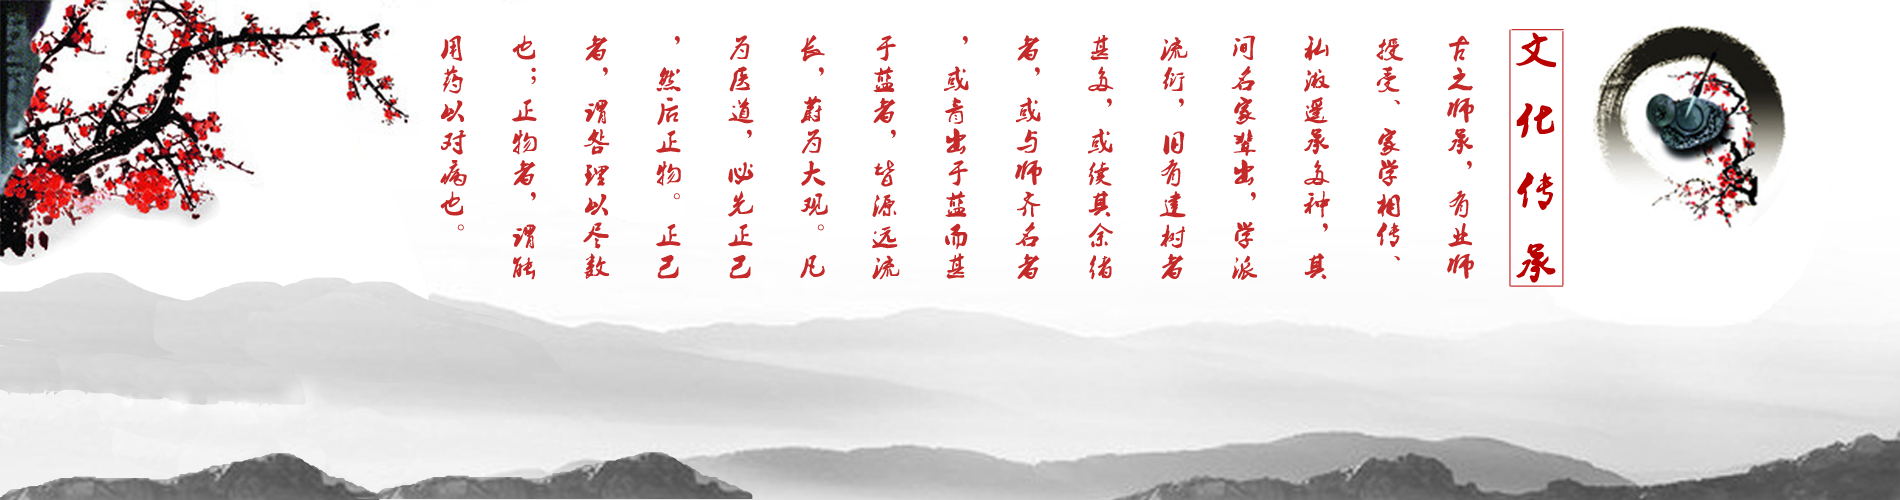 文化传承
古之师承，有业师
授受、家学相传、
私淑遥承多种，其
间名家辈出，学派
流衍，旧有建树者
甚多，或续其余绪
者，或与师齐名者
，或青出于蓝而甚
于蓝者，皆源远流
长，蔚为大观。凡
为医道，必先正己
，然后正物。正己
者，谓明理以尽数
也；正物者，谓能
用药以对病也。